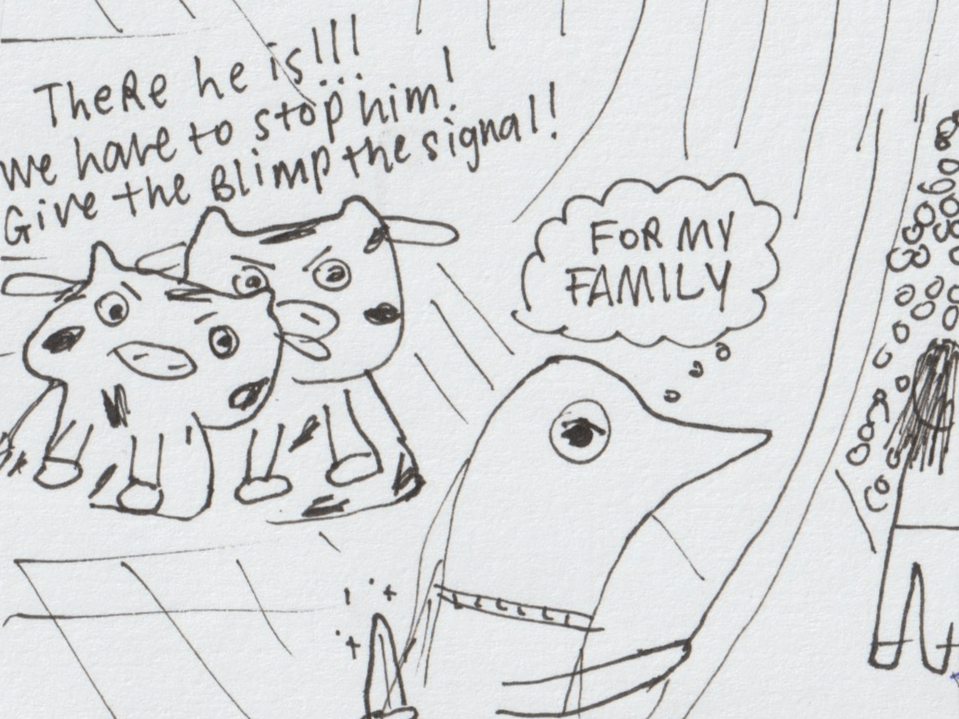 TheRe he is!!!
we have to stop him!
Give the Blimp the signal!!
FOR MY
FAMILY